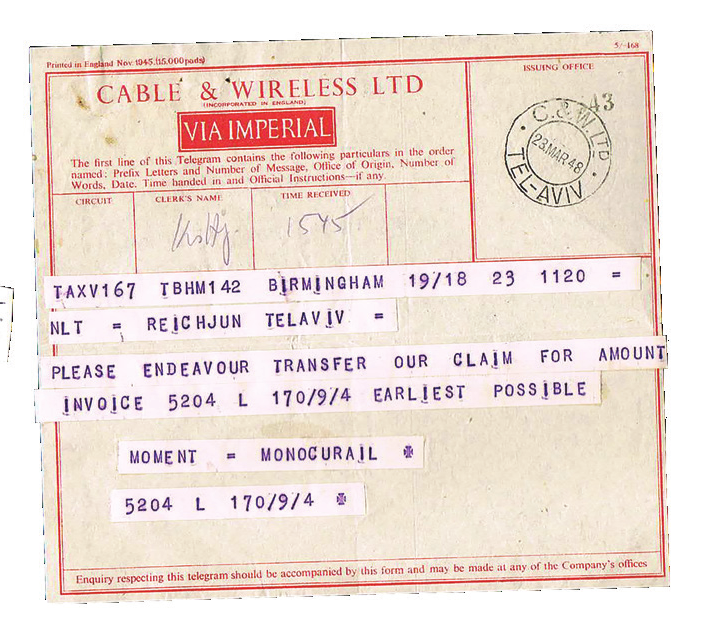 5/-168
Printed in England Nov. 1945. (15.000 pads)
CABLE & WIRELESS LTD
(INCORPORATED IN ENGLAND)
VIA IMPERIAL
The first line of this Telegram contains the following particulars in the order
named: Prefix Letters and Number of Message, Office of Origin, Number of
Words, Date, Time handed in and Official Instructions—if any.
ISSUING OFFICE
43
C.& W. LTD.
23 MAR 48
TEL-AVIV
CIRCUIT CLERK'S NAME TIME RECEIVED
1545
TAXV167 TBHM142 BIRMINGHAM 19/18 23 1120 =
NLT = REICHJUN TELAVIV =
PLEASE ENDEAVOUR TRANSFER OUR CLAIM FOR AMOUNT
INVOICE 5204 L 170/9/4 EARLIEST POSSIBLE
MOMENT = MONOCURAIL
5204 L 170/9/4
Enquiry respecting this telegram should be accompanied by this form and may be made at any of the Company's offices